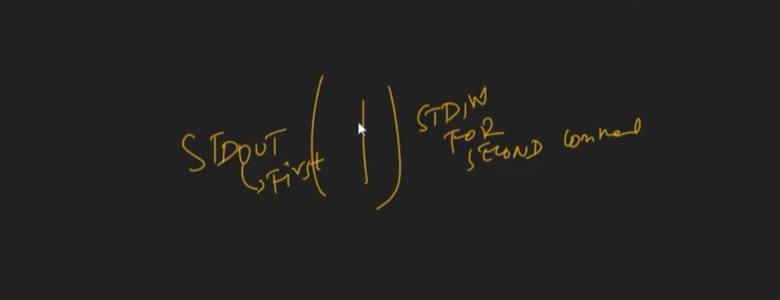 STDOUT
First
( | )
STDIN
FOR
SECOND command